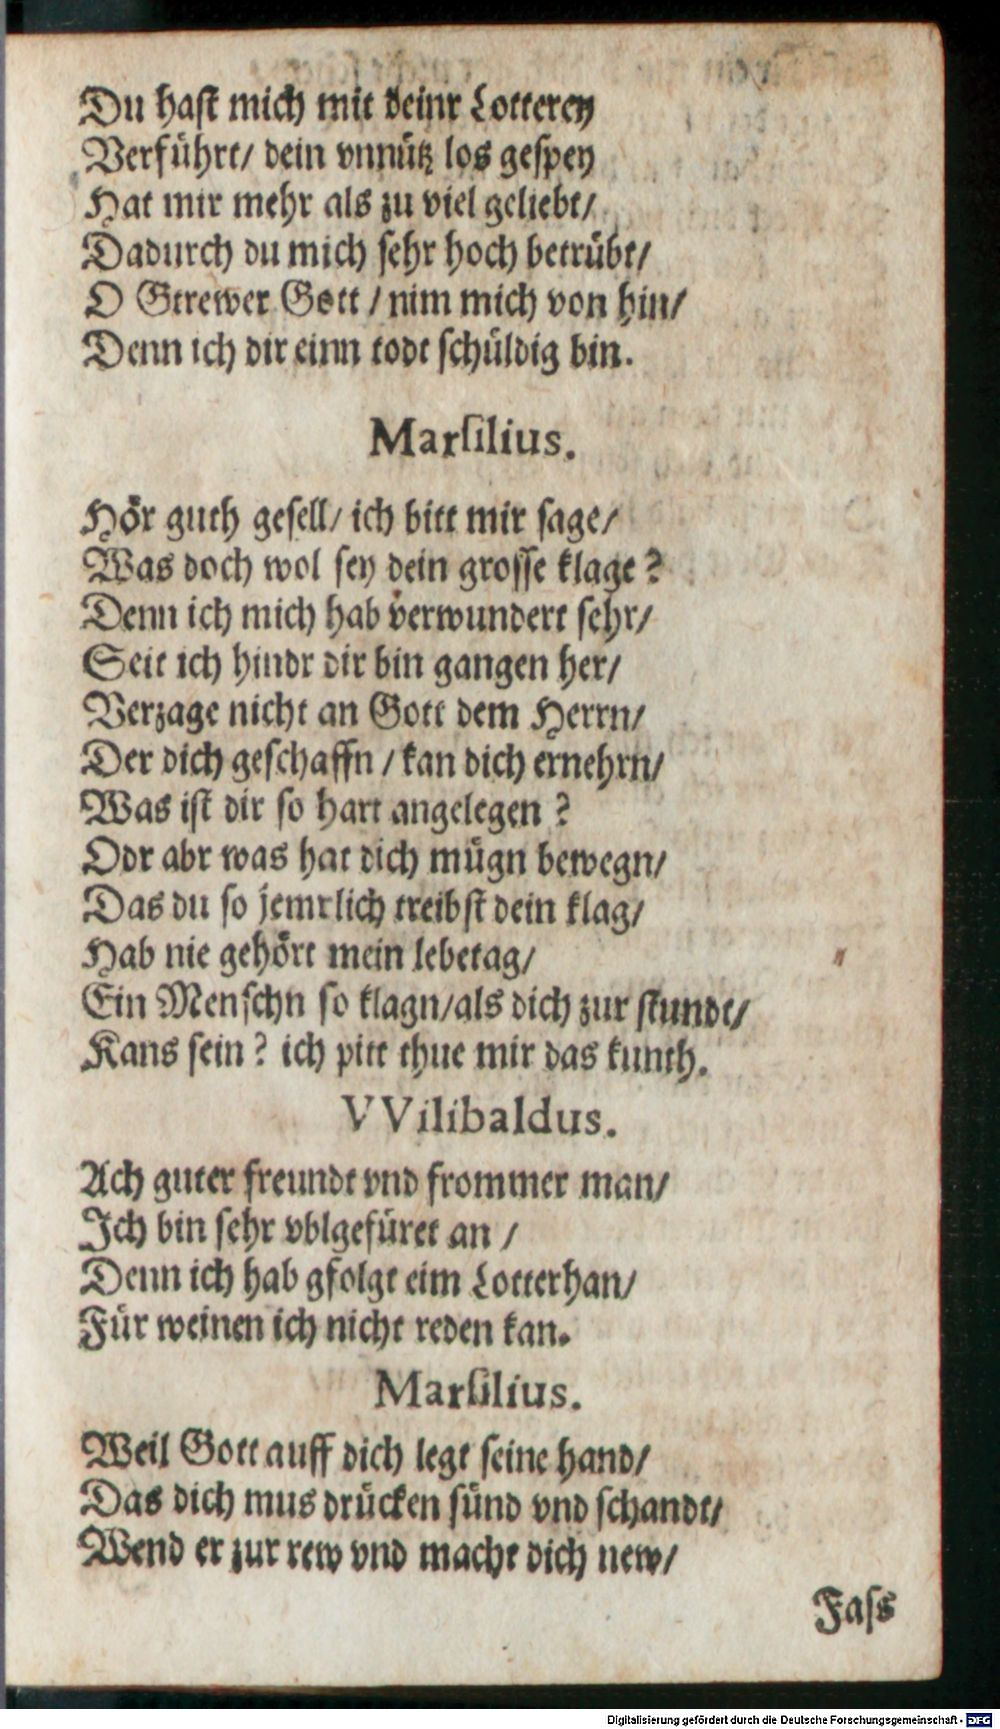 Du haſt mich mit deinr Lotterey
Verführt/ dein vnnütz los geſpey
Hat mir mehr als zu viel geliebt/
Dadurch du mich ſehr hoch betrübt/
O Gtrewer Gott / nim mich von hin/
Denn ich dir einn todt ſchüldig bin.
Marſilius.
Hör guth geſell/ ich bitt mir ſage/
Was doch wol ſey dein groſſe klage?
Denn ich mich hab verwundert ſehr/
Seit ich hindr dir bin gangen her/
Verzage nicht an Gott dem Herrn/
Der dich geſchaffn / kan dich ernehrn/
Was iſt dir ſo hart angelegen?
Odr abr was hat dich mügn bewegn/
Das du ſo jemrlich treibſt dein klag/
Hab nie gehört mein lebetag/
Ein Menſchn ſo klagn/als dich zur ſtundt/
Kans ſein? ich pitt thue mir das kunth.
VVilibaldus.
Ach guter freundt vnd frommer man/
Ich bin ſehr vblgefüret an /
Denn ich hab gfolgt eim Lotterhan/
Für weinen ich nicht reden kan.
Marſilius.
Weil Gott auff dich legt ſeine hand/
Das dich mus drücken ſünd vnd ſchandt/
Wend er zur rew vnd macht dich new/
Faſs
Digitalisierung gefördert durch die Deutsche Forschungsgemeinschaft - DFG